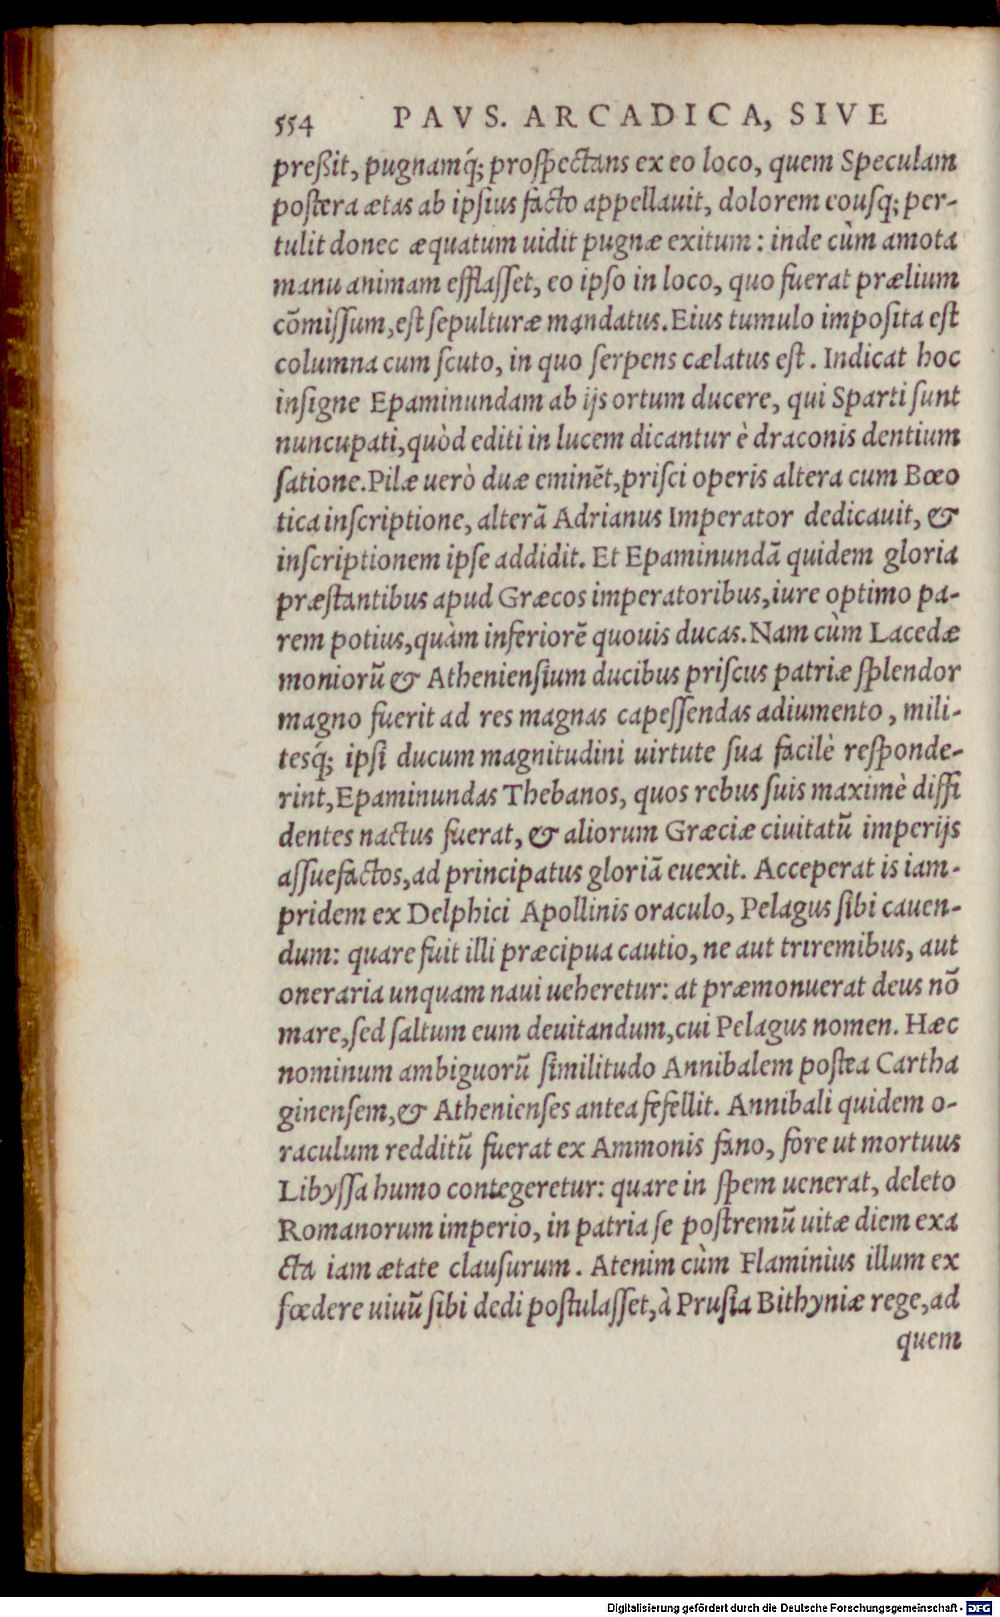 554 PAVS. ARCADICA, SIVE
preßit, pugnamq́; proſpectans ex eo loco, quem Speculam
poſtera ætas ab ipſius facto appellauit, dolorem eouſq; per-
tulit donec æquatum uidit pugnæ exitum: inde cùm amota
manu animam efflaſſet, eo ipſo in loco, quo fuerat prælium
cõmiſſum, eſt ſepulturæ mandatus. Eius tumulo impoſita eſt
columna cum ſcuto, in quo ſerpens cælatus eſt. Indicat hoc
inſigne Epaminundam ab ijs ortum ducere, qui Sparti ſunt
nuncupati, quòd editi in lucem dicantur è draconis dentium
ſatione. Pilæ uerò duæ eminẽt, priſci operis altera cum Bœo
tica inſcriptione, alterã Adrianus Imperator dedicauit, &
inſcriptionem ipſe addidit. Et Epaminundã quidem gloria
præſtantibus apud Græcos imperatoribus, iure optimo pa-
rem potius, quàm inferiorẽ quouis ducas. Nam cùm Lacedæ
moniorũ & Athenienſium ducibus priſcus patriæ ſplendor
magno fuerit ad res magnas capeſſendas adiumento, mili-
tesq́; ipſi ducum magnitudini uirtute ſua facilè reſponde-
rint, Epaminundas Thebanos, quos rebus ſuis maximè diffi
dentes nactus fuerat, & aliorum Græciæ ciuitatũ imperijs
aſſuefactos, ad principatus gloriã euexit. Acceperat is iam-
pridem ex Delphici Apollinis oraculo, Pelagus ſibi cauen-
dum: quare fuit illi præcipua cautio, ne aut triremibus, aut
oneraria unquam naui ueheretur: at præmonuerat deus nõ
mare, ſed ſaltum eum deuitandum, cui Pelagus nomen. Hæc
nominum ambiguorũ ſimilitudo Annibalem poſtea Cartha
ginenſem, & Athenienſes antea fefellit. Annibali quidem o-
raculum redditũ fuerat ex Ammonis fano, fore ut mortuus
Libyſſa humo contegeretur: quare in ſpem uenerat, deleto
Romanorum imperio, in patria ſe poſtremũ uitæ diem exa
cta iam ætate clauſurum. Atenim cùm Flaminius illum ex
fœdere uiuũ ſibi dedi poſtulaſſet, à Pruſia Bithyniæ rege, ad
quem
Digitalisierung gefördert durch die Deutsche Forschungsgemeinschaft - DFG